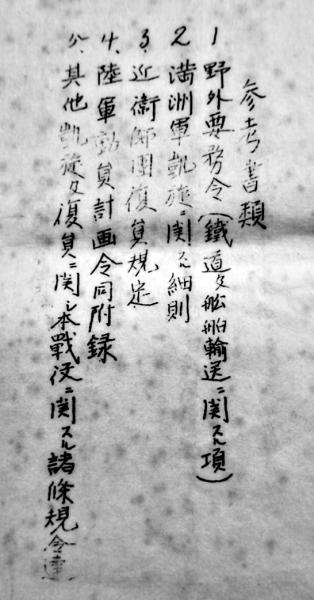 参考書類
1 野外要務令(鐵道及船舶輸送ニ関スル項)
2 満洲軍凱旋ニ関スル細則
3、近衛師團復員規定
4、陸軍動員計画令同附録
5、其他凱旋及復員ニ関シ本戰役ニ関スル諸條規令達